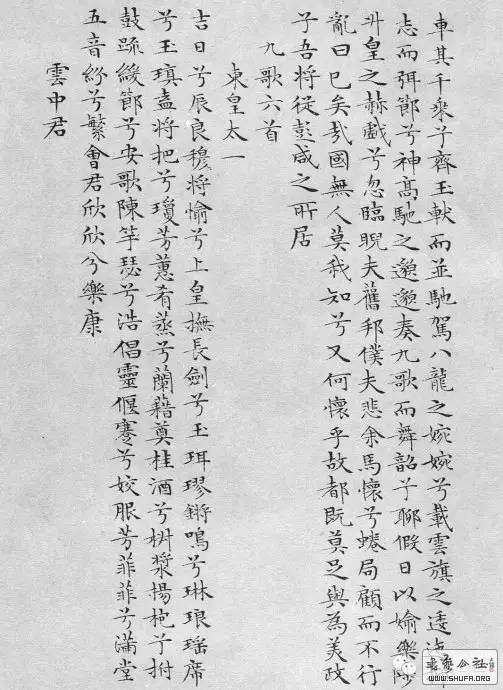 車其千乘兮齊玉軑而並馳駕八龍之婉婉兮載雲旗之逶
志而弭節兮神髙馳之邈邈奏九歌而舞韶兮聊假日以媮樂陟
升皇之赫戲兮忽臨睨夫舊邦僕夫悲余馬懷兮蜷局顧而不行
亂曰已矣哉國無人莫我知兮又何懷乎故都既莫足與為美政
兮吾將從彭咸之所居
九歌六首
東皇太一
吉日兮辰良穆將愉兮上皇撫長劍兮玉珥璆鏘鳴兮琳琅瑤席
兮玉瑱盍將把兮瓊芳蕙肴蒸兮蘭藉奠桂酒兮椒漿揚枹兮拊
鼓疏緩節兮安歌陳竽瑟兮浩倡靈偃蹇兮姣服芳菲菲兮滿堂
五音紛兮繁會君欣欣兮樂康
雲中君
WWW.SHUFA.ORG